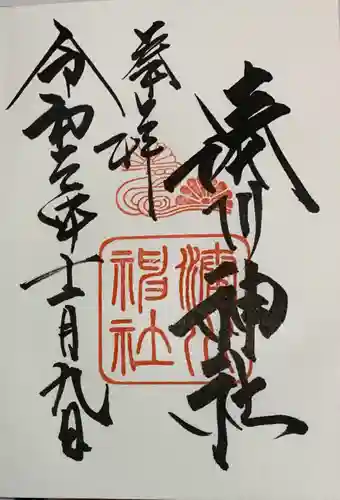 湊川神社
奉拝
令和六年十一月九日
湊川
神社